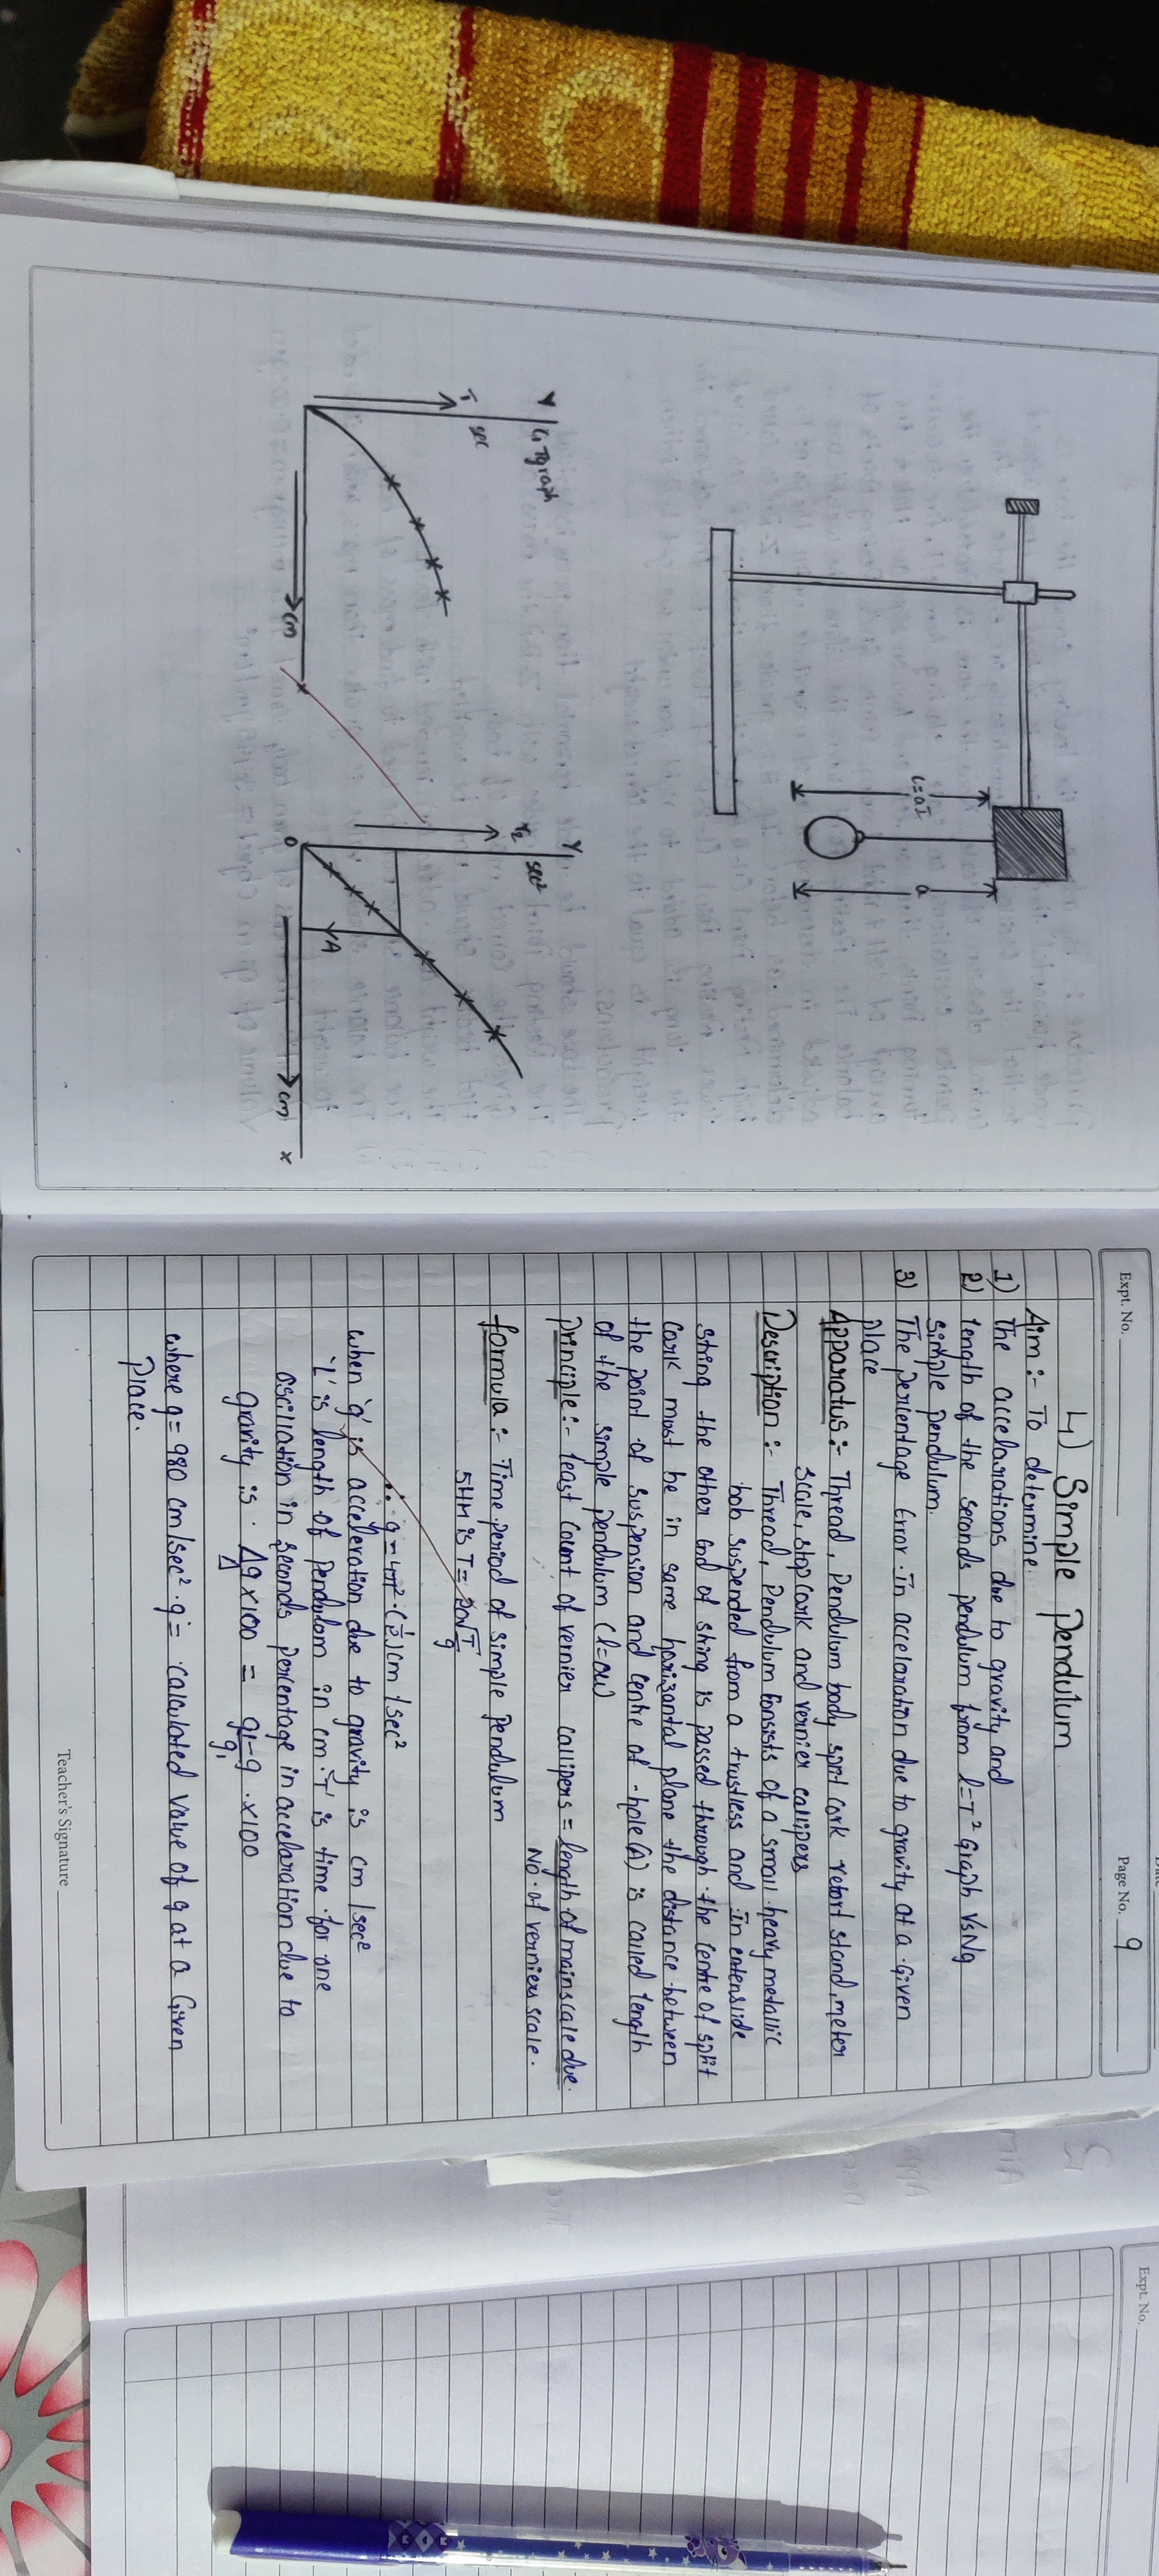 L=al
a
Y
G Tgraph
T
sec
cm
Y
T2
sec²
A
O
cm
x
Expt. No.
Page No. 9
4) Simple Pendulum
Aim:- To determine.
1) The accelarations due to gravity and
2) length of the seconds pendulum from l-T² Graph VsNg
simple pendulum.
3) The percentage Error. In accelaration due to gravity at a. Given
place
Apparatus:- Thread, Pendulum body, spit cark retort stand, meter
scale, stop cark and vernier callipers
Description:- Thread, Pendulum Consists of a small. heavy metallic
bob suspended from a trustless and In extenslide
string the other end of string is passed through. the centre of split
cark must be in same horizontal plane the distance between
the point of suspension and centre of -hole (A) is called length
of the simple pendulum (l=
principle:- least Count of vernier callipers = length of mainscale due.
No. of verniers scale.
formula:- Time period of simple pendulum
SHM is T = 2π√T/g
∴ g = 4π².(
) cm/sec²
when 'g' is acceleration due to gravity is cm/sec²
'L' is length of pendulum in cm. 'T' is time for one
oscillation in seconds percentage in accelaration due to
gravity is. Δg/Δ x100 = g1-g/g1 .x100
where g = 980 cm/sec². g = calculated value of g at a Given
Place.
Teacher's Signature
Expt. No.